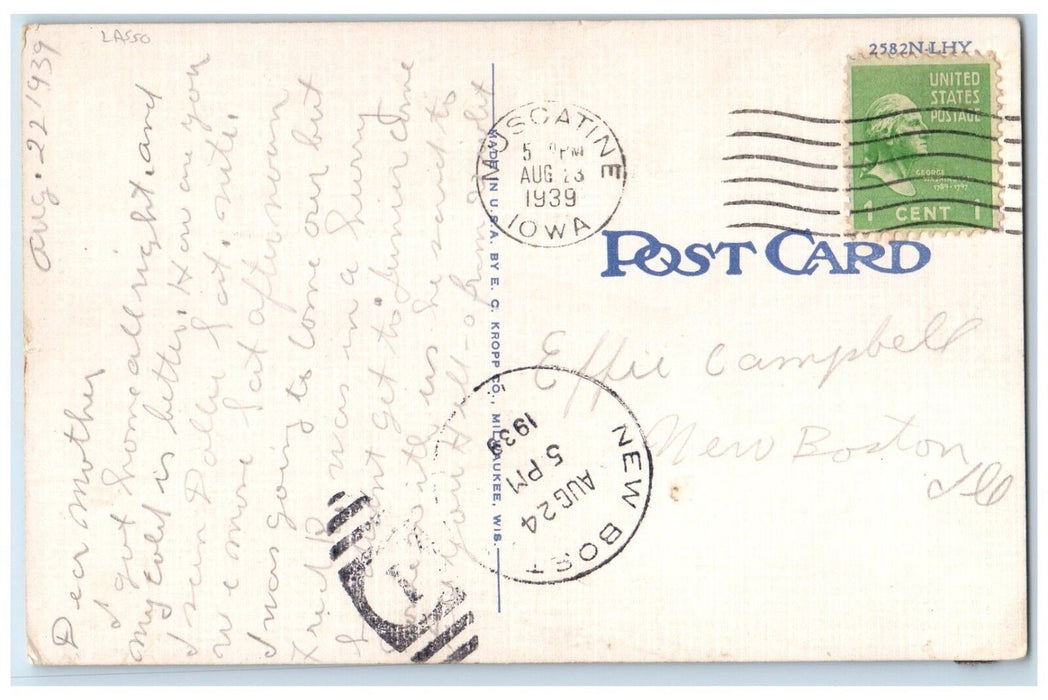 LASSO
Aug. 22 1939
Dear Mother
I got home all right and
my cold is better. How are you
I seen Dolly Sat. nite.
We move Sat afternoon
I was going to come over but
Fried was in a hurry
I dont get to
with us he said to
2582N-LHY
UNITED
STATES
POSTAGE
GEORGE
WASHINGTON
1789-1797
1 CENT 1
MUSCATINE
5 PM
AUG 23
1939
IOWA
POST CARD
MADE IN U.S.A. BY E. C. KROPP CO., MILWAUKEE, WIS.
Effie Campbell
New Boston
Ill
NEW BOST
AUG 24
5 PM
1939